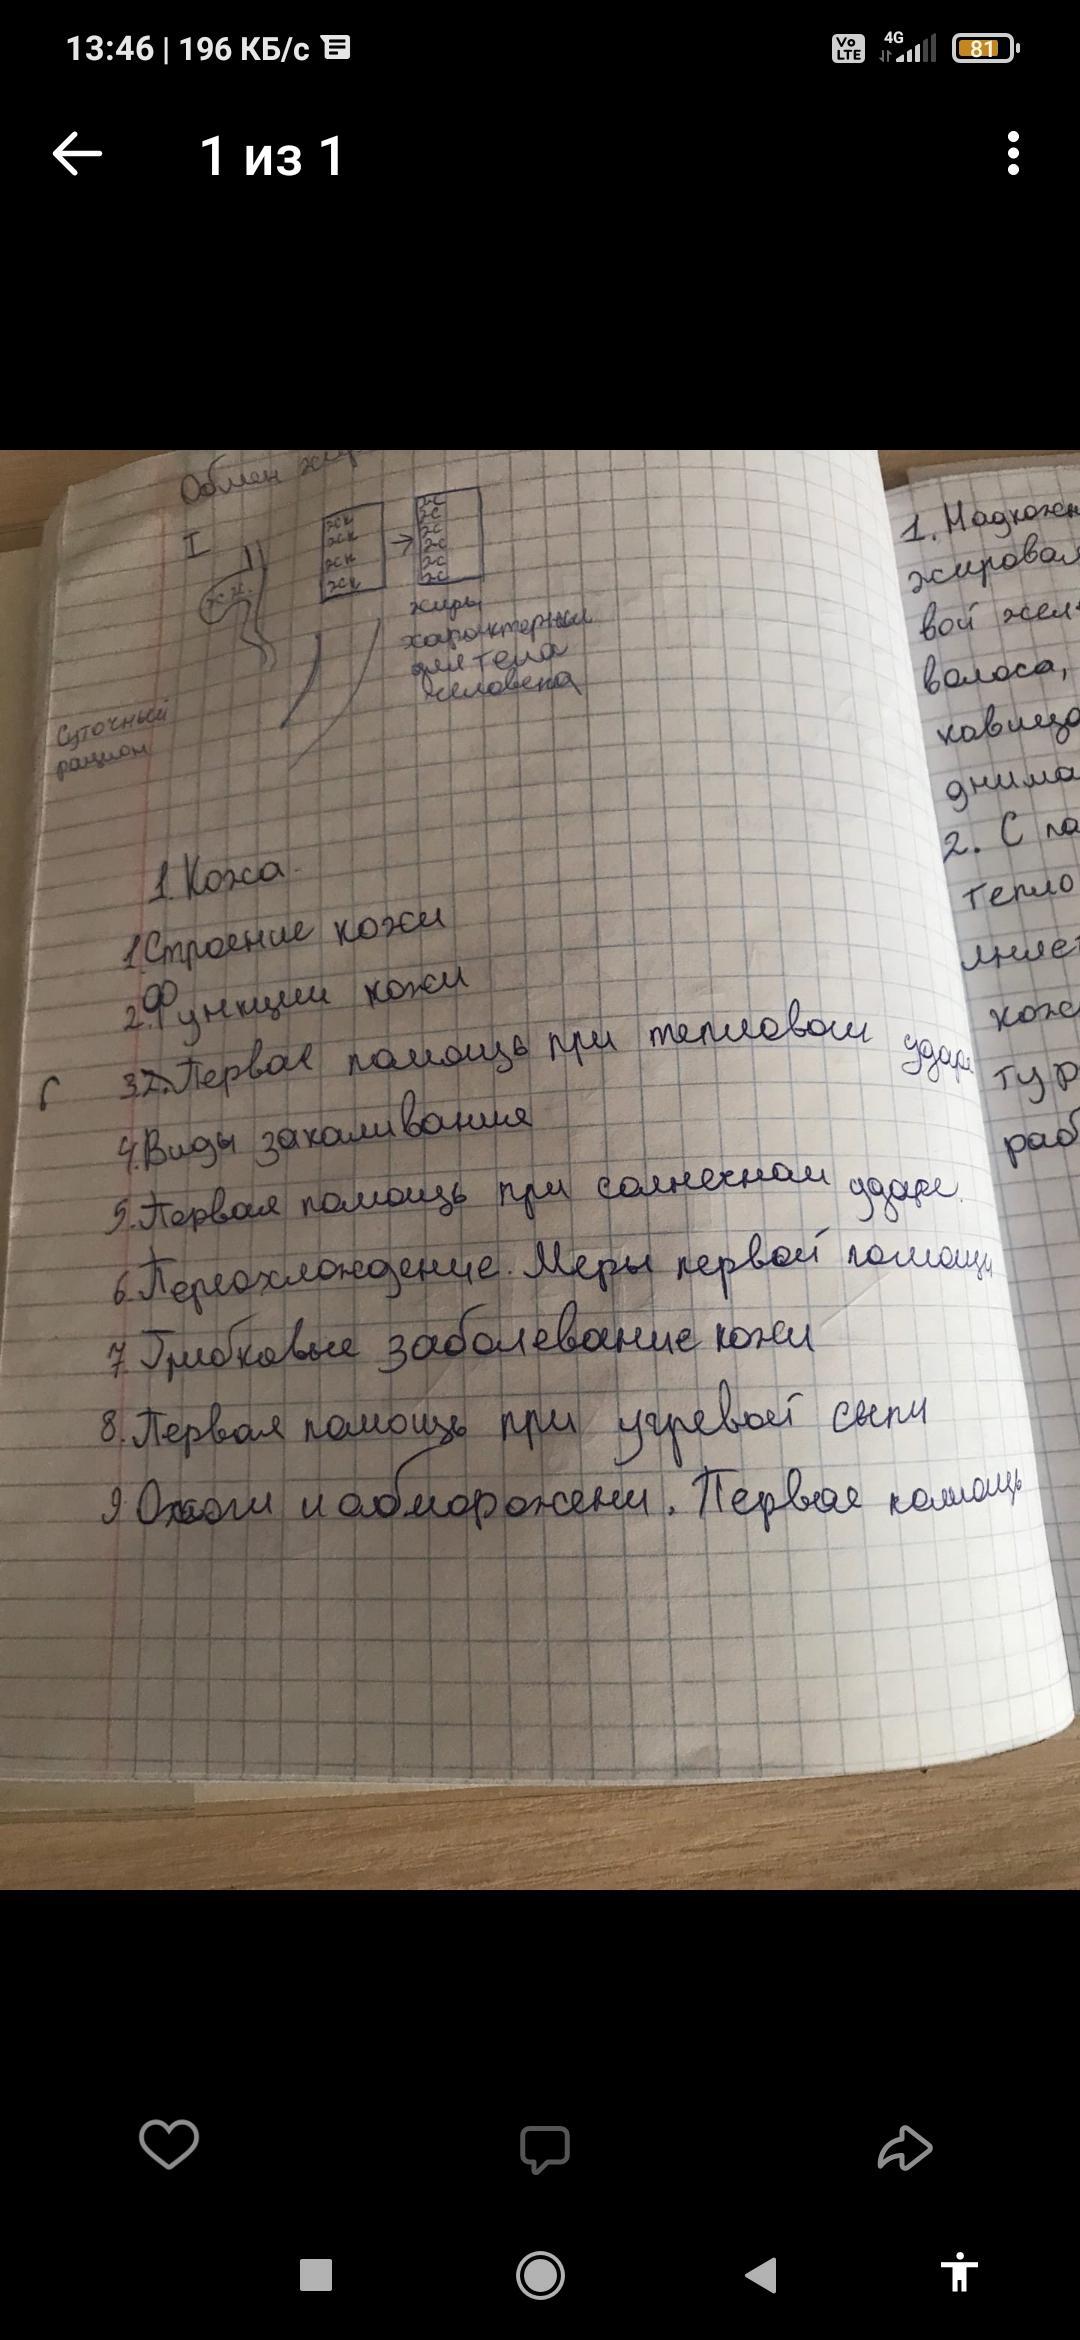 13:46 | 196 КБ/с
Vo LTE 4G 81
1 из 1
Обмен
I
жк
жк
жк
жк
жиры
характерные
для тела
человека
Суточный
рацион
1. Кожа.
1. Строение кожи
2. Функции кожи
3. Первая помощь при тепловом ударе
4. Виды закаливания
5. Первая помощь при солнечном ударе.
6. Переохлождение. Меры первой помощи
7. Грибковые заболевание кожи
8. Первая помощь при угревой сыпи
9. Ожоги и обморожени. Первая помощь
1. Надкожн
жировая
вой жел
волоса,
днима
2. С по
тепло
кож
тур
раб